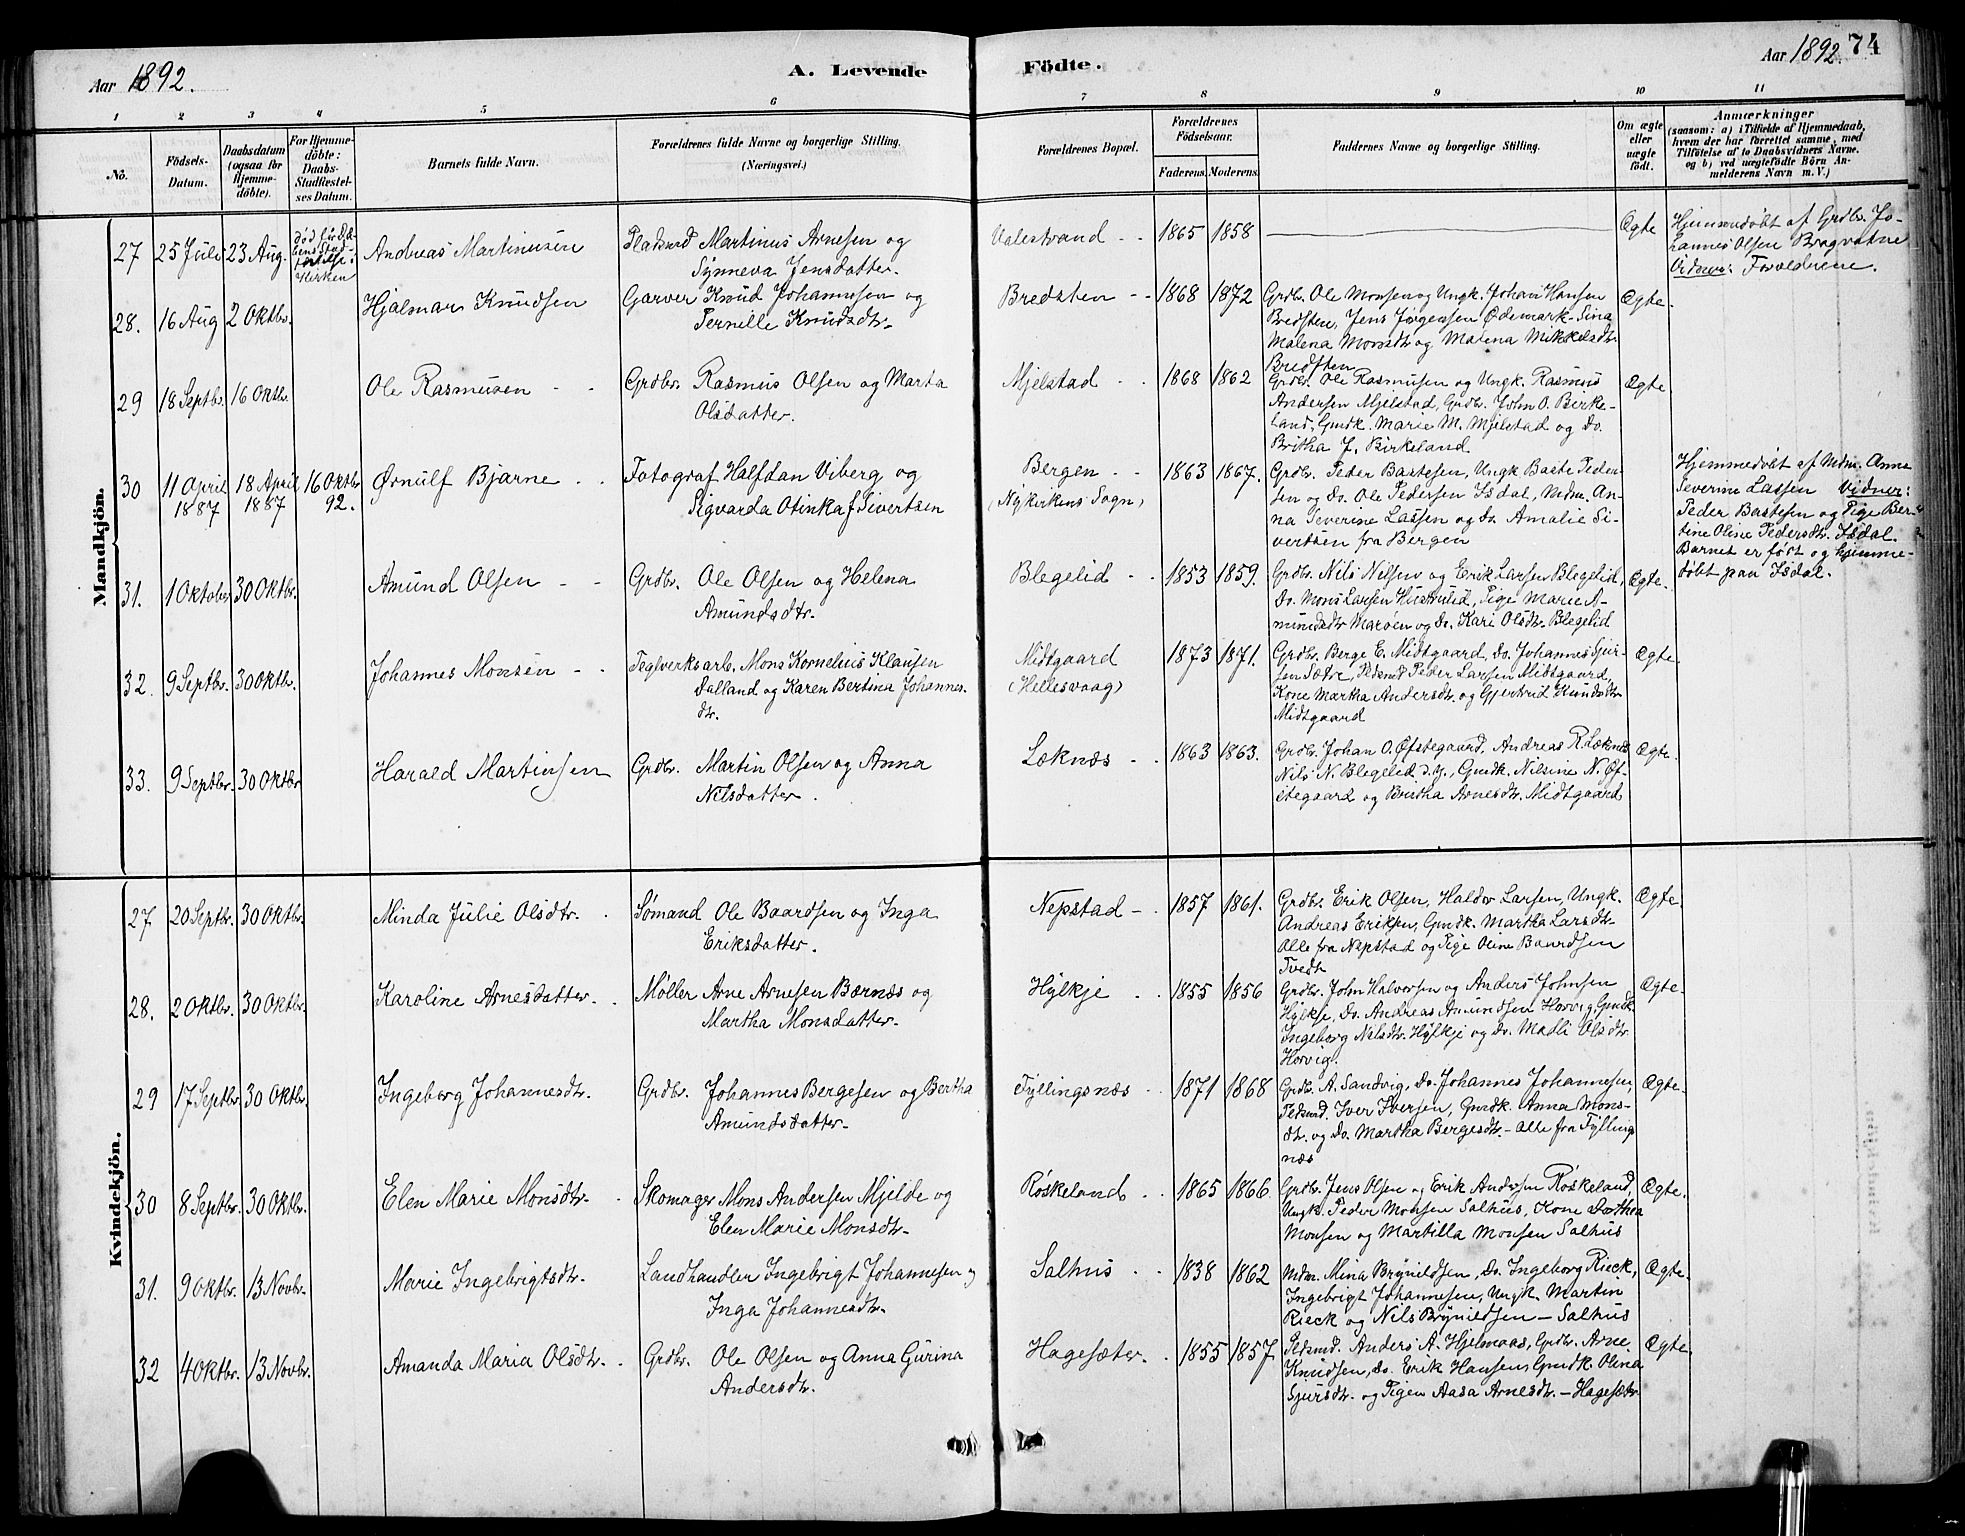 Aar 1892.
A. Levende Födte.
Aar 1892. 74
1 2 3 4 5 6 7 8 9 10 11
No.
Födsels-Datum.
Daabsdatum (ogsaa for Hjemme-döbte).
For Hjemme-döbte: Daabs-Stadfæstel-ses Datum.
Barnets fulde Navn.
Forældrenes fulde Navne og borgerlige Stilling. (Næringsvei.)
Forældrenes Bopæl.
Forældrenes Födselsaar.
Faderens. Moderens.
Faddernes Navne og borgerlige Stilling.
Om ægte eller uægte födt.
Anmærkninger
(saasom: a) i Tilfælde af Hjemmedaab,
hvem der har forrettet samme, med
Tilföielse af to Daabsvidners Navne.
og b) ved uægtefödte Börn An-
melderens Navn m. V.)
Mandkjön.
27 25 Juli 23 Aug. Død før Daa-
bens Stad-
fæstelse i
Kirken
Andreas Martinusen
Pladsmd Martinus Arnesen og
Synneva Jensdatter.
Valestrand 1865 1858
Ægte
Hjemmedøbt af Grdbr. Jo-
hannes Olsen Bragvatne
Vidner: Forældrene.
28. 16 Aug 2 Oktbr. Hjalmar Knudsen
Garver Knud Johannesen og
Pernille Knudsdtr.
Bredsten 1868 1872
Grdbr. Ole Monsen og Ungk. Johan Hansen
Bredsten, Jens Jørgensen Ødemark - Sina
Malena Monsdtr og Malena Mikkelsdtr.
Bredsten
Ægte.
29 18 Septbr. 16 Oktbr. Ole Rasmusen
Grdbr. Rasmus Olsen og Marta
Olsdatter.
Mjelstad 1868 1862
Grdbr. Ole Rasmusen og Ungk. Rasmus
Andersen Mjelstad, Grdbr. John O. Birke-
land, Gmdk. Marie M. Mjelstad og Do.
Britha J. Birkeland
Ægte
30 11 April 1887 18 April 1887 16 Oktbr 92. Ørnulf Bjarne
Fotograf Halfdan Viberg og
Sigvarda Otinka f Sivertsen
Bergen
(Nykirkens Sogn)
1863 1867.
Grdbr. Peder Bastesen, Ungk Baste Peder-
sen og Do. Ole Pedersen Isdal, Mdm. An-
na Severine Lassen og Do. Amalie Si-
vertsen fra Bergen
Hjemmedøbt af Mdm. Anna
Severine Lassen Vidner:
Peder Bastesen og Pige Ber-
tine Oline Pedersdtr. Isdal.
Barnet er født og hjemme-
døbt paa Isdal.
31. 1 Oktober 30 Oktbr. Amund Olsen
Grdbr. Ole Olsen og Helena
Amundsdtr.
Blegelid 1853 1859.
Grdbr. Nils Nilsen og Erik Larsen Blegelid,
Do. Mons Larsen Husträlid, Pige Marie A-
mundsdtr Marøen og Do. Kari Olsdtr. Blegelid
Ægte.
32. 9 Septbr. 30 Oktbr. Johannes Monsen
Teglverksarb. Mons Kornelius Klausen
Dalland og Karen Bertina Johannes-
dtr.
Midtgaard
(Hellesvaag)
1873 1871.
Grdbr. Berge E. Midtgaard, Do. Johannes Sjur-
sen Sætre, Pedsmd Peder Larsen Midtgaard,
Kone Martha Andersdtr. og Gjertrud Knudsdtr.
Midtgaard
Ægte.
33. 9 Septbr. 30 Oktbr Harald Martinsen
Grdbr. Martin Olsen og Anna
Nilsdatter.
Læknæs 1863 1863.
Grdbr. Johan O. Øfstegaard, Andreas R. Læknæs
Nils N. Blegelid d.y., Gmdk. Nilsine N. Øf-
stegaard og Britha Arnesdtr. Midtgaard
Ægte.
Kvindekjön.
27 20 Septbr. 30 Oktbr. Minda Julie Olsdtr.
Sømand Ole Baardsen og Inga
Eriksdatter.
Nepstad 1857 1861.
Grdbr. Erik Olsen, Haldor Larsen, Ungk.
Andreas Eriksen, Gmdk. Martha Larsdtr.
Alle fra Nepstad og Pige Oline Baardsen
Tvedt
Ægte.
28. 2 Oktbr. 30 Oktbr. Karoline Arnesdatter.
Møller Arne Arnesen Børnæs og
Martha Monsdatter.
Hylkje 1855 1856
Grdbr. John Halvorsen og Anders Johnsen
Hylkje, Do. Andreas Amundsen Horvig, Gmdk.
Ingeborg Nilsdtr. Hylkje og Do. Madli Olsdtr.
Horvig.
Ægte.
29 17 Septbr. 30 Oktbr. Ingeborg Johannesdtr.
Grdbr. Johannes Bergesen og Bertha
Amundsdatter.
Fyllingsnæs 1871 1868
Grdbr. A. Sandvig, Do. Johannes Johannesen,
Pedsmd. Iver Iversen, Gmdk. Anna Mons-
dtr. og Do. Martha Bergesdtr. - Alle fra Fyllings
næs
Ægte.
30 8 Septbr. 30 Oktbr. Elen Marie Monsdtr.
Skomager Mons Andersen Mjelde og
Elen Marie Monsdtr.
Røskeland 1865 1866
Grdbr. Jens Olsen og Erik Andersen Røskeland,
Ungk. Peder Monsen Salhus, Kone Dorthea
Monsen og Martilla Monsen Salhus
Ægte.
31. 9 Oktbr. 13 Novbr. Marie Ingebrigtsdtr.
Landhandler Ingebrigt Johannesen og
Inga Johannesdtr.
Salhus 1838 1862
Mdm. Mina Brynildsen, Do. Ingeborg Rieck,
Ingebrigt Johannesen, Ungk. Martin
Rieck og Nils Brynildsen - Salhus
Ægte.
32 4 Oktbr. 13 Novbr. Amanda Maria Olsdtr.
Grdbr. Ole Olsen og Anna Gurina
Andersdtr.
Hagesæter. 1855 1857
Pedsmd. Anders A. Hjelmaas, Grdbr. Arne
Knudsen, Do. Erik Hansen, Gmdk. Olena
Sjursdtr. og Pigen Aasa Arnesdtr. - Hagesætr.
Ægte.